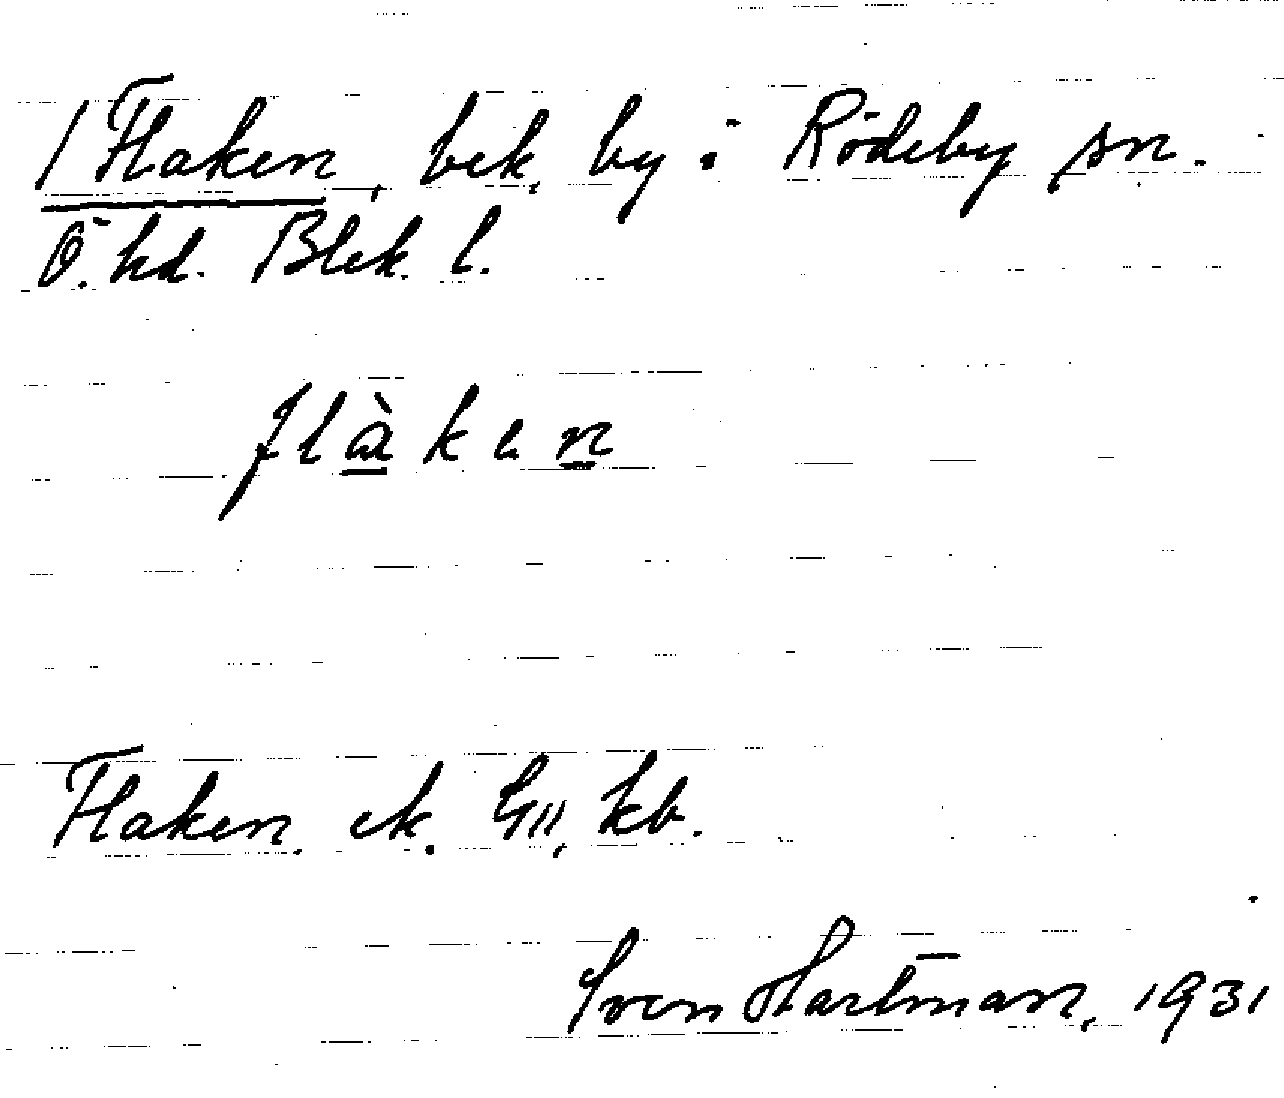 / Flaken, bek. by i Rödeby sn.
Ö. hd. Blek. l.
flàken
Flaken. ek. GII, kb.
Sven Hartman, 1931